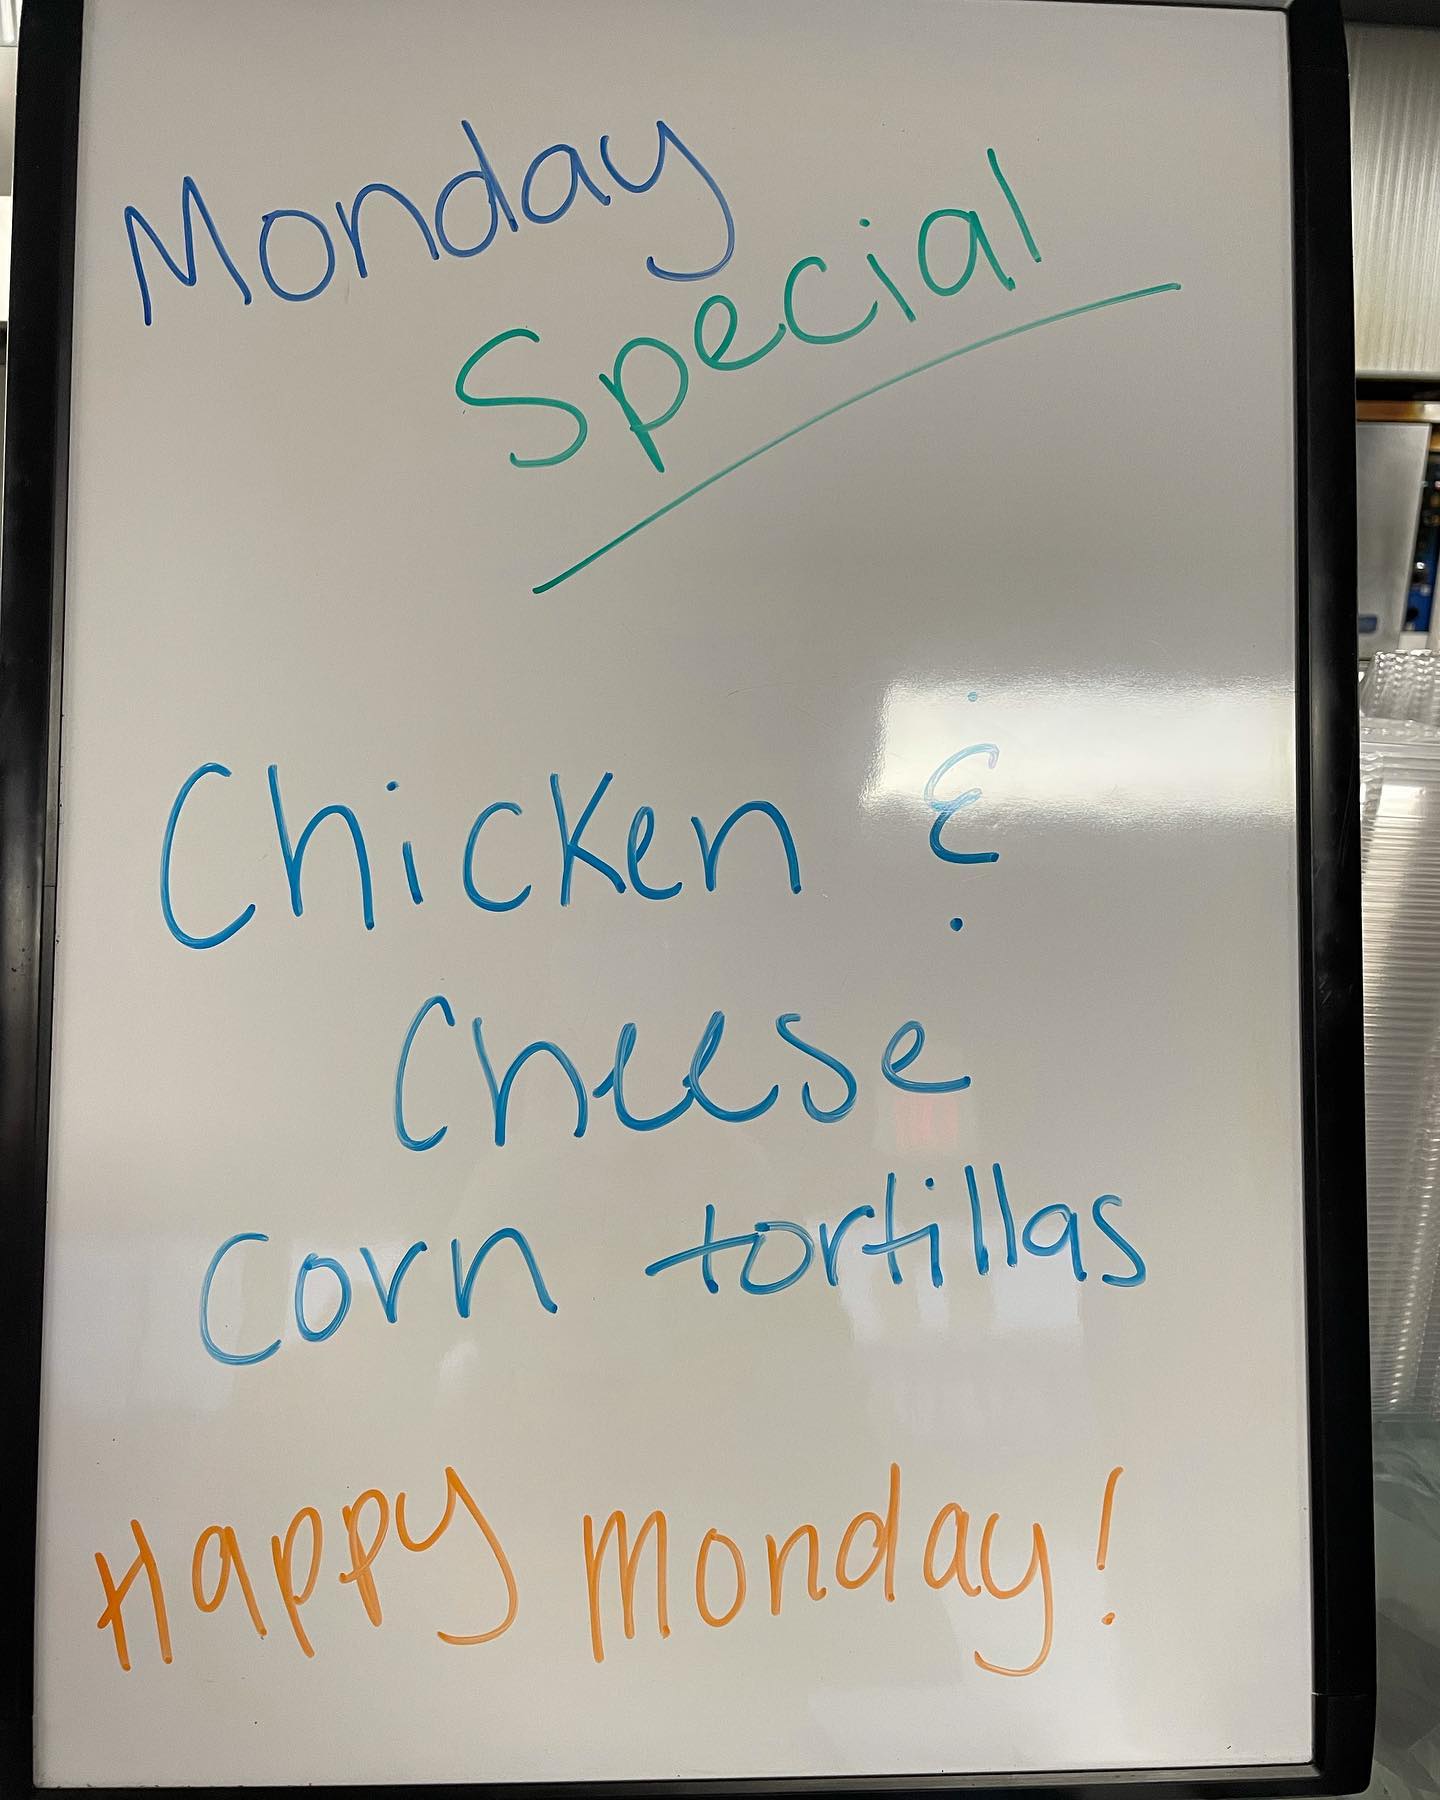 Monday
Special
Chicken &
Cheese
Corn tortillas
Happy Monday!